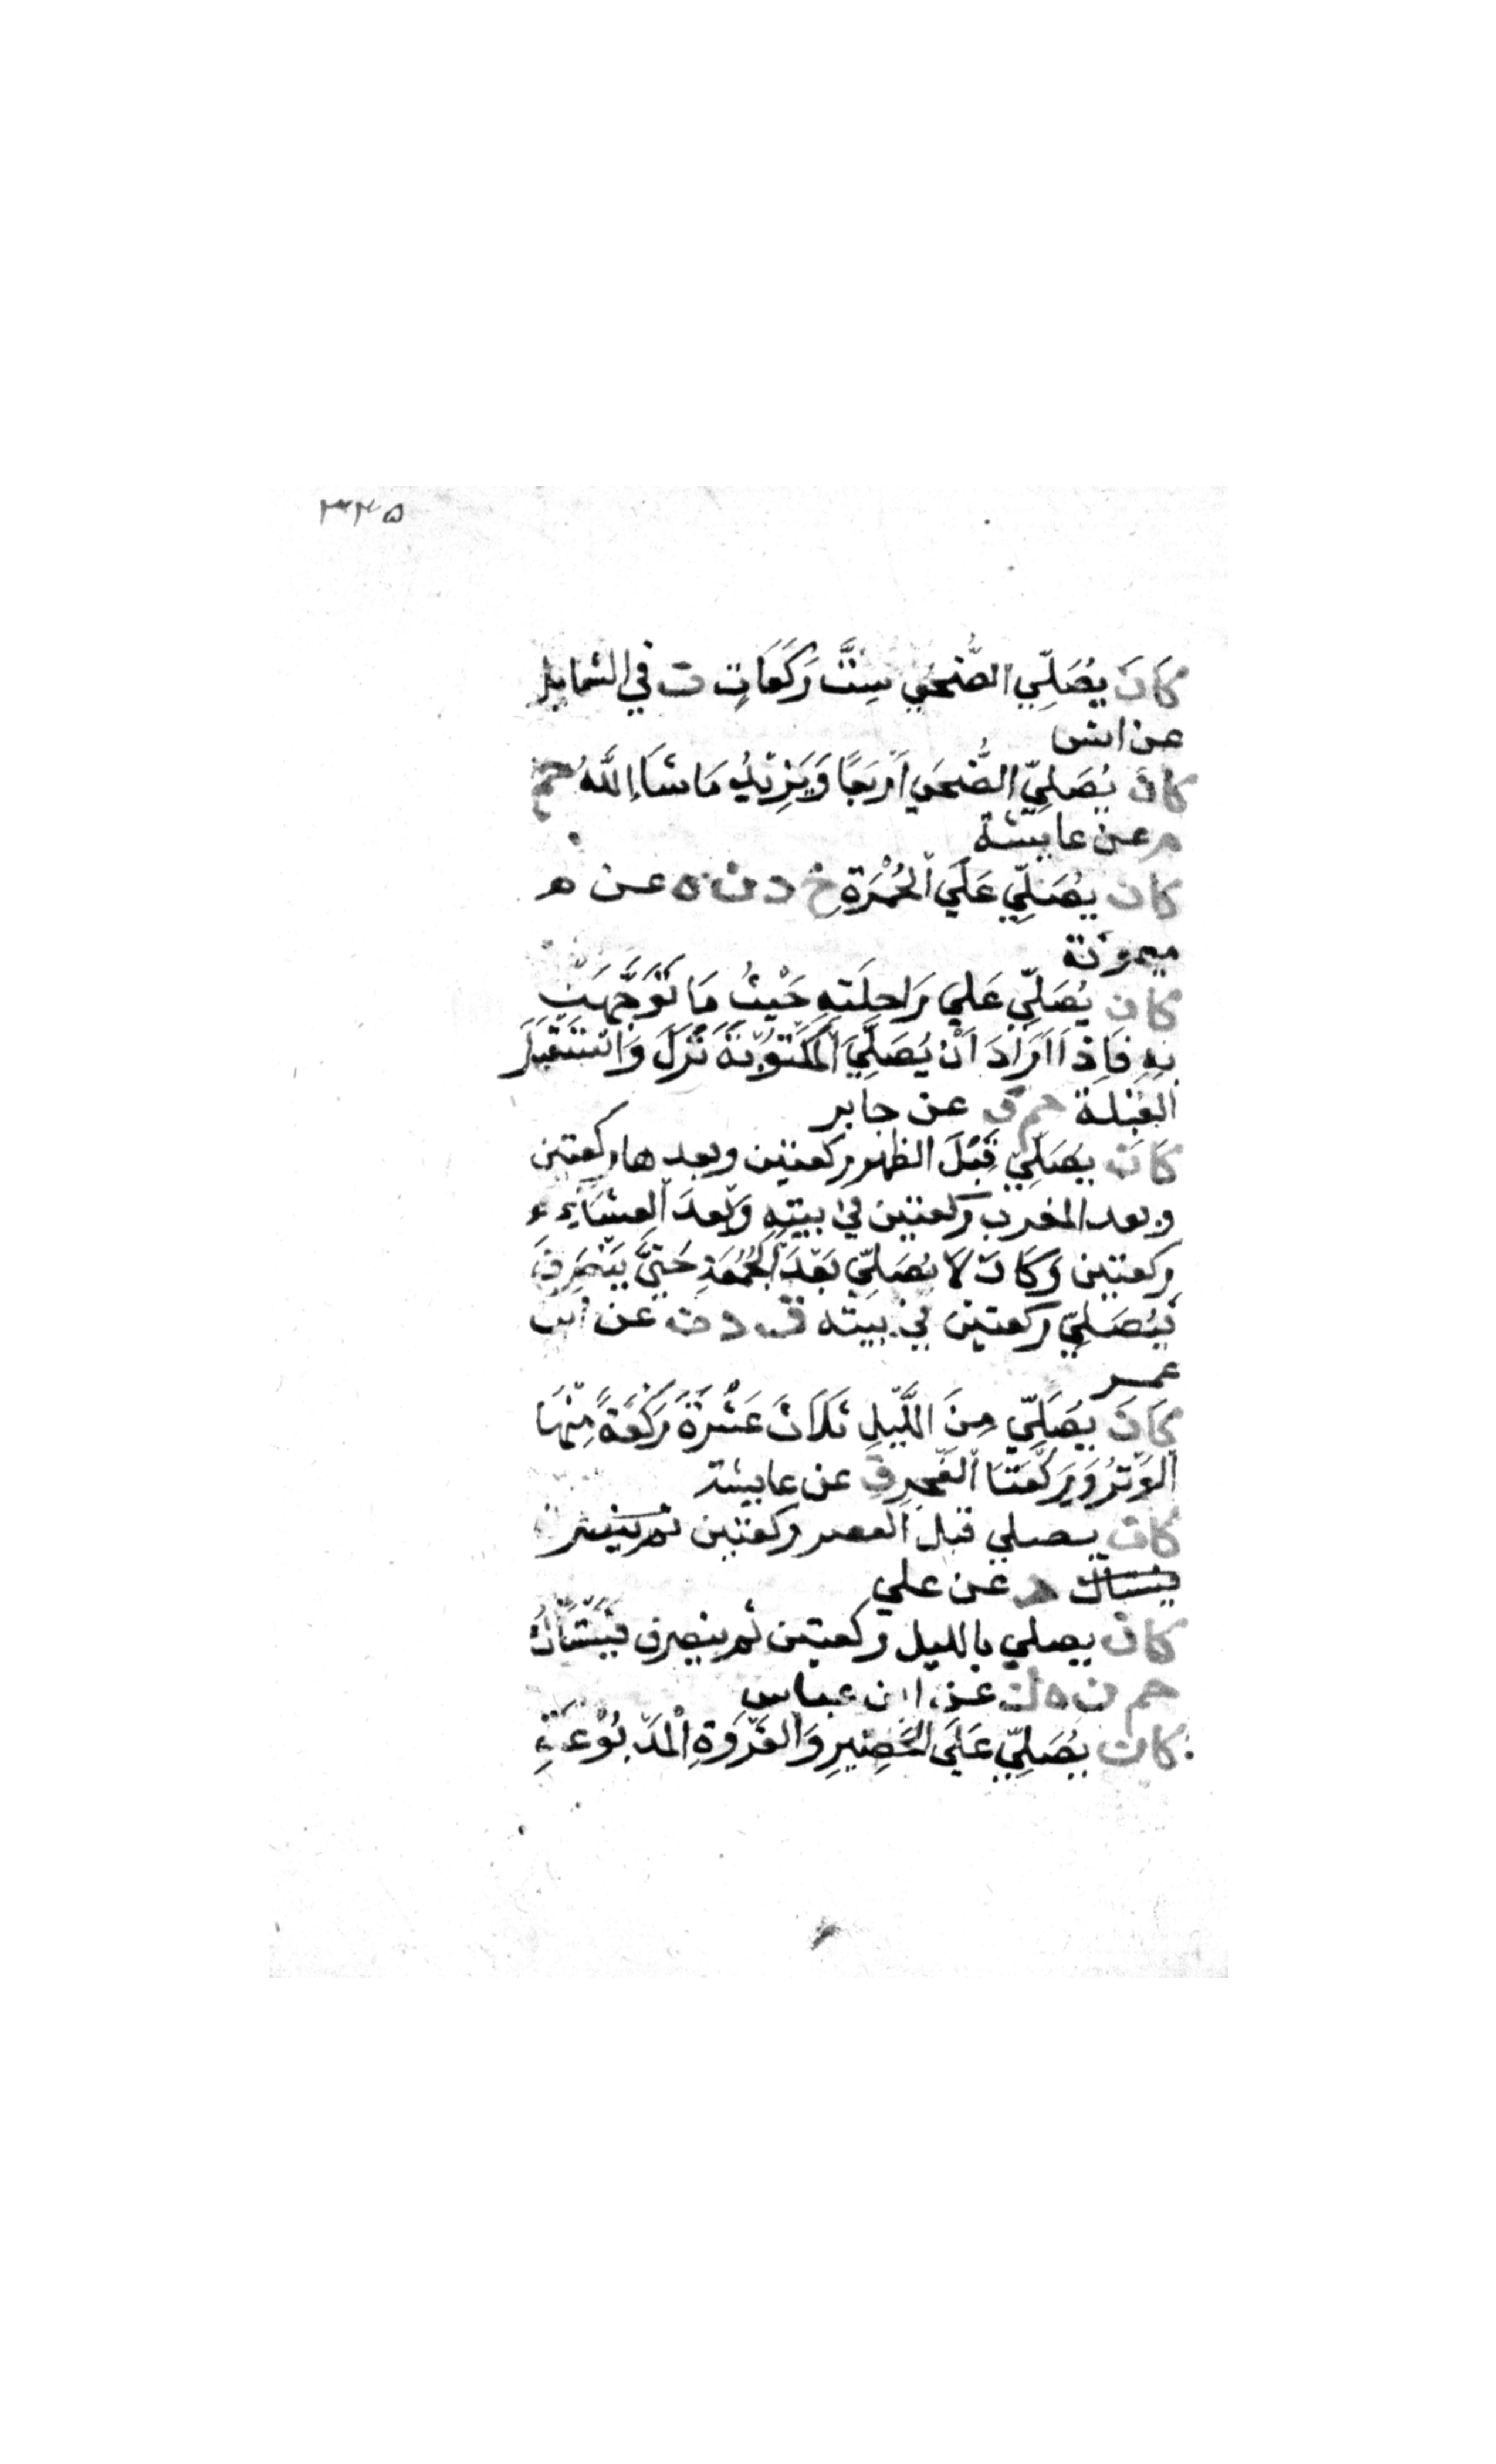 ٣٢٥
كَانَ يُصَلِّي الضُّحَى سِتَّ رَكَعَاتٍ ت في الشمايل
عن انس
كان يُصَلِّي الضُّحَي اَرْبَعًا وَيَزِيْدُ مَا شَاَ اللَّهُ حم
م عن عايشة
كان يُصَلِّي عَلَي الْخُمْرَةِ خ د ن ه عن م
ميمونة
كان يُصَلِّي عَلي رَاحِلَتِهِ حَيْثُ مَا تَوَجَّهَتْ
بِهِ فَاِذَا اَرَادَ اَنْ يُصَلِّيَ الْمَكْتُوْبَةَ نَزَلَ وَاسْتَقْبَلَ
القِبْلَة حم ق عن جابر
كَانَ يُصَلِّي قَبْلَ الظهر ركعتين وبعدها ركعتين
وبعد المغرب ركعتين في بيتِهِ وَبَعدَ الْعِشَاءِ
ركعتين وَكَانَ لَا يُصَلِّي بَعْدَ الْجُمُعَةِ حَتَّى يَنْصَرِفَ
فَيُصَلِّي ركعتين في بيته ق د ن عن ابن
عمر
كَانَ يُصَلِّي مِنَ اللَّيْلِ ثَلَاثَ عَشْرَةَ رَكْعَةً مِنْهَا
الْوِتْرُ وَرَكْعَتَا الْفَجْرِ ق عن عايشة
كان يصلي قبل العصر ركعتين
د عن علي
كان يصلي بالليل ركعتين ثم ينصرف فَيَسْتَاكُ
حم ن ه ك عن ابن عباس
كان يُصَلِّي عَلَى الْحَصِيْرِ وَالْفَرْوَةِ الْمَدْبُوْغَةِ